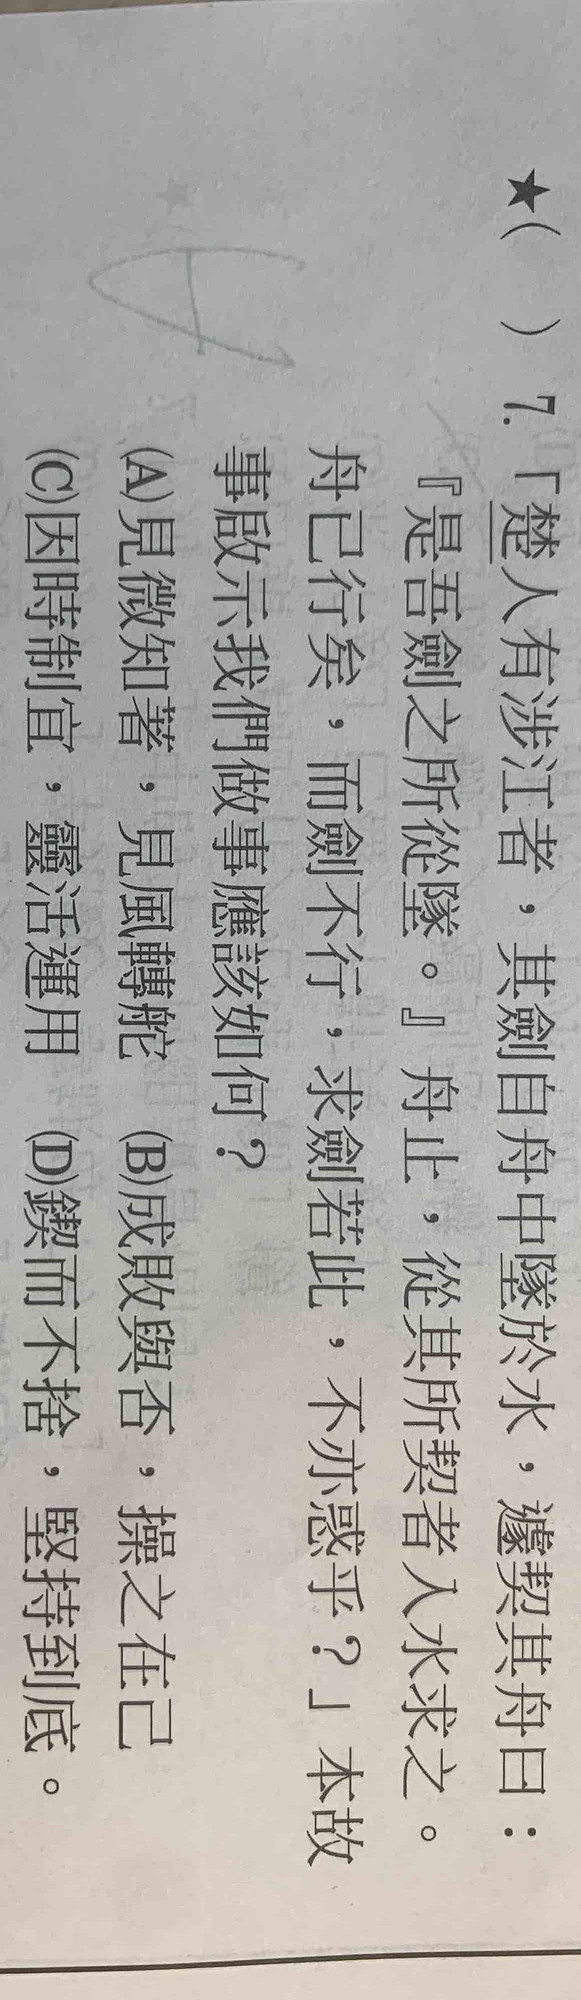 ★(　)7.「楚人有涉江者，其劍自舟中墜於水，遽契其舟曰：
『是吾劍之所從墜。』舟止，從其所契者入水求之。
舟已行矣，而劍不行，求劍若此，不亦惑乎？」本故
事啟示我們做事應該如何？
(A)見微知著，見風轉舵　(B)成敗與否，操之在己
(C)因時制宜，靈活運用　(D)鍥而不捨，堅持到底。
A